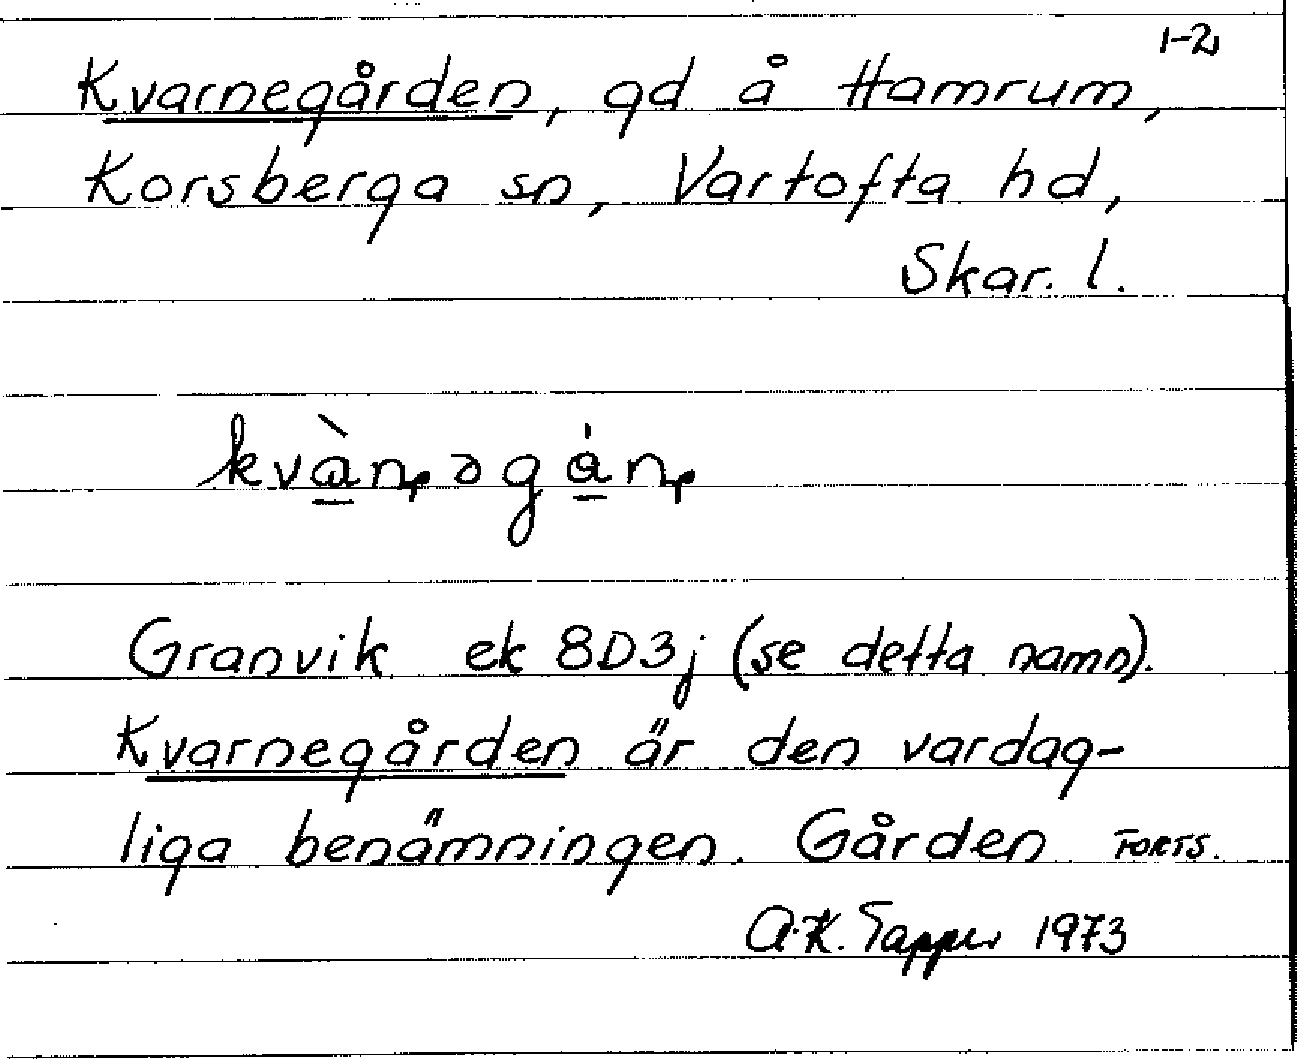 1-2
Kvarnegården, gd å Hamrum,
Korsberga sn, Vartofta hd,
Skar. l.
kvàn̥əgán̥
Granvik ek 8D3j (se detta namn).
Kvarnegården är den vardag-
liga benämningen. Gården FORTS.
A.K. Tapper 1973